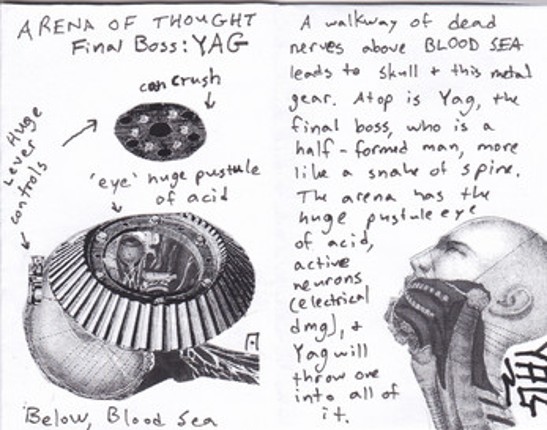 ARENA OF THOUGHT
Final Boss: YAG
can crush
Huge
Lever
controls
'eye' huge pustule
of acid
Below, Blood Sea
A walkway of dead
nerves above BLOOD SEA
leads to skull + this metal
gear. Atop is Yag, the
final boss, who is a
half-formed man, more
like a snake of spine.
The arena has the
huge pustule eye
of acid,
active
neurons
(electrical
dmg), +
Yag will
throw one
into all of
it.
YAG